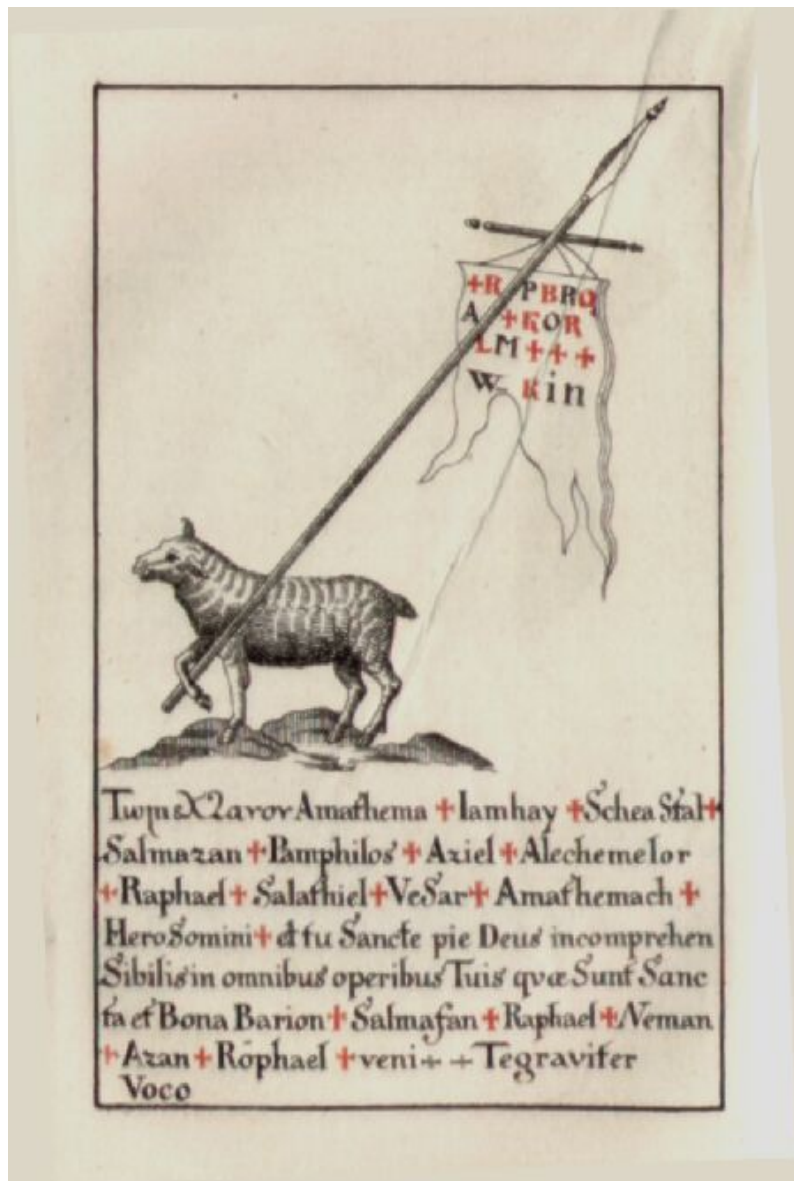 +R PBRQ
A +KOR
LM+++
W Rin
Amathema + Iamhay + Schea Stal +
Salmazan + Pamphilos + Aziel + Alechemelor
+ Raphael + Salathiel + VeSar + Amathemach +
HeroSomini + et tu Sancte pie Deus incomprehen
Sibilis in omnibus operibus Tuis quæ Sunt Sanc
ta et Bona Barion + Salmasan + Raphael + Neman
+ Azan + Rophael + veni + + Tegraviter
Voco